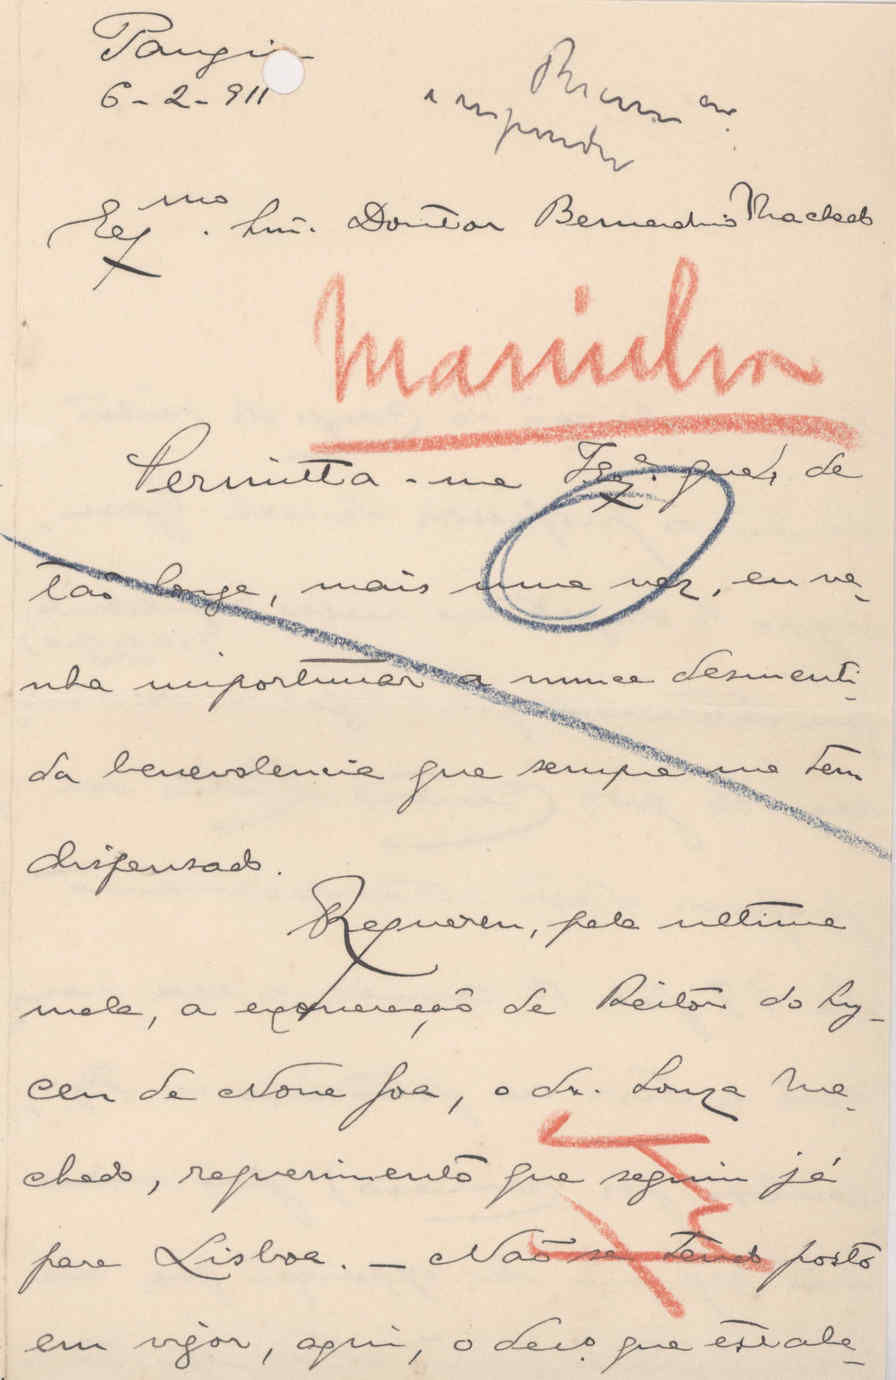 Pangim
6-2-911
a responder
Exmo. Snr. Doutor Bernardino Machado
Marinha
Permitta-me V. Exa. que, de
tão longe, mais uma vez, eu ve-
nha importunar a nunca desmenti-
da benevolencia que sempre me tem
dispensado.
Requereu, pela ultima
mala, a exoneração de Reitor do Ly-
ceu de Nova Goa, o dr. Souza Ma-
chado, requerimento que seguiu já
para Lisboa. - Não se tendo posto
em vigor, aqui, o dec.o que estabe-